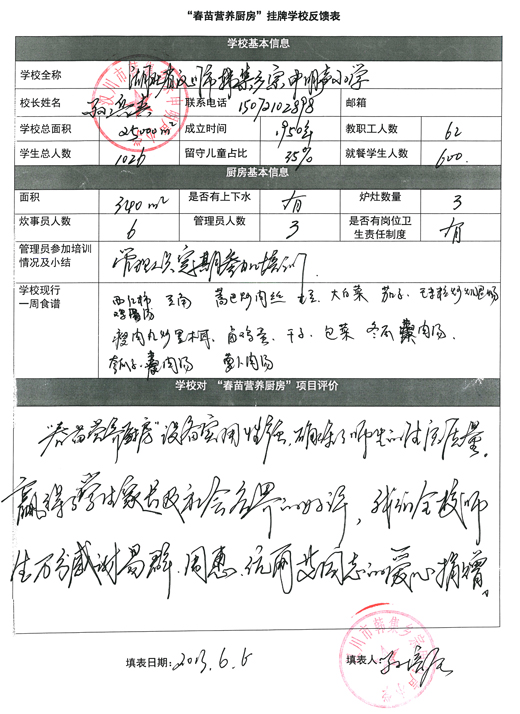 “春苗营养厨房”挂牌学校反馈表
学校基本信息
学校全称 湖北省汉川市韩集乡宗申明声小学
校长姓名 联系电话 15072102898 邮箱
学校总面积 25000m² 成立时间 1950年 教职工人数 62
学生总人数 1026 留守儿童占比 35% 就餐学生人数 600
厨房基本信息
面积 340m² 是否有上下水 有 炉灶数量 3
炊事员人数 6 管理员人数 3 是否有岗位卫生责任制度 有
管理员参加培训情况及小结 管理人员定期参加培训.
学校现行一周食谱 西红柿 炒肉丝 大白菜 茄子
鸡蛋汤
瘦肉丸炒黑木耳、卤鸡蛋、干子、包菜、冬瓜 肉汤、
肉汤 萝卜肉汤
学校对“春苗营养厨房”项目评价
“春苗营养厨房”设备实用性强,确保了师生的生活质量。
赢得了学生家长及社会各界的好评,我们全校师
生万分感谢易群、周惠、伉雨 同志的爱心捐赠。
填表日期:2013.6.6 填表人: